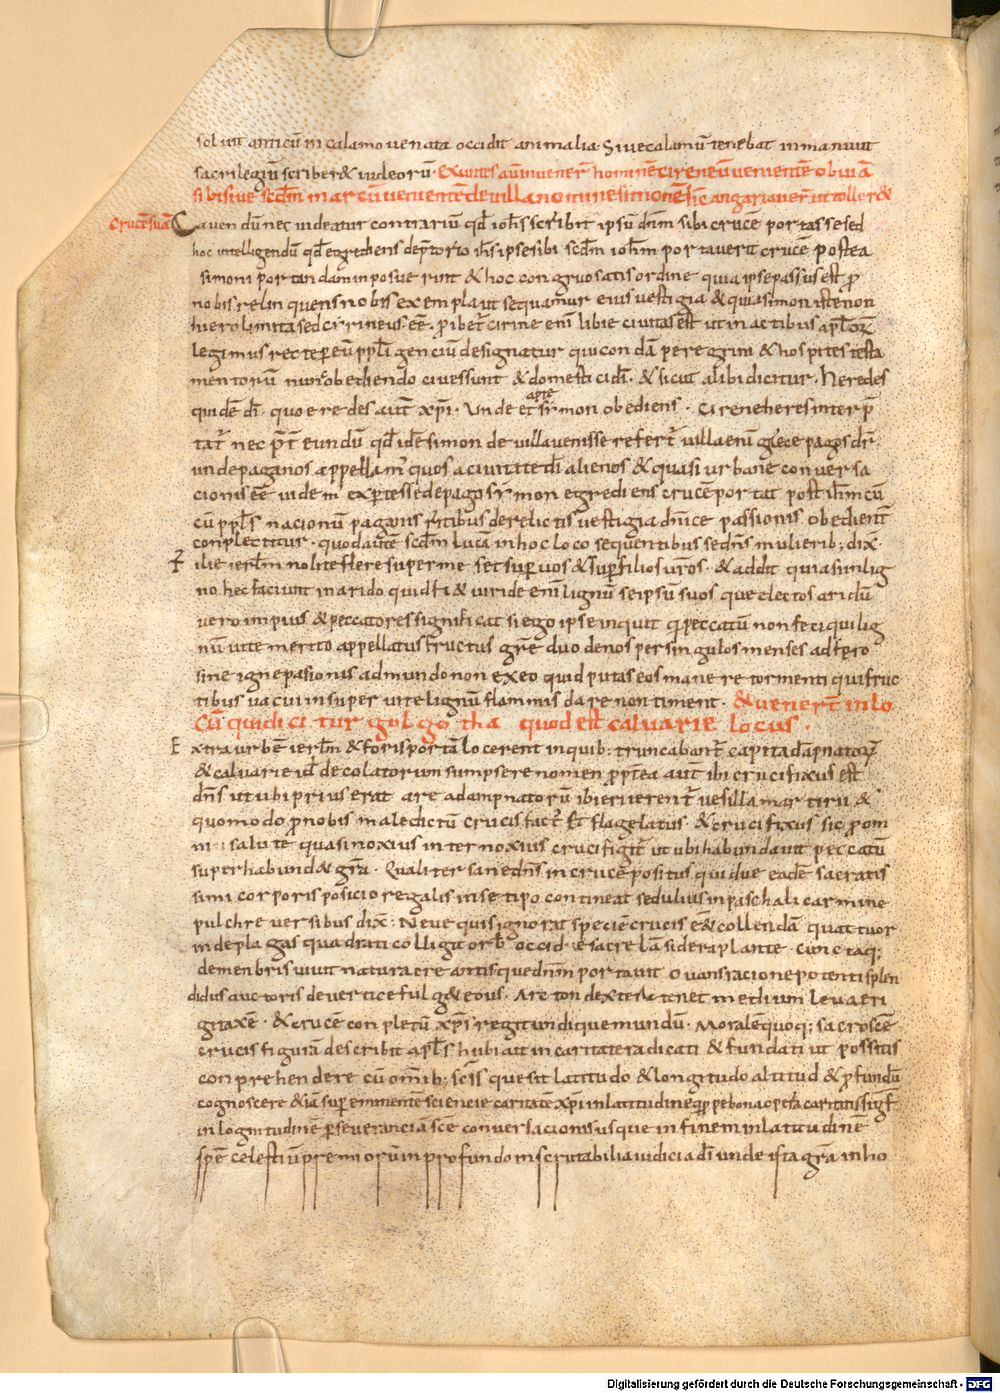 soluit anticũ in calamo uenata occidit animalia. Siue calamũ tenebat in manu ut
sacrilegiũ scriber& iudeorũ. Exuntes aũt inuener̃ hominẽ cireneũ uenientẽ obuiã
sibi siue scd̃m marcũ uenientẽ de uilla nomine simonẽ hic angariauer̃ ut toller&
crucẽ suã Cauendũ nec uideatur contrariũ qd̃ ioh̃s scribit ipsũ dñm sibi crucẽ portasse sed
hoc intelligendũ qd̃ egrediens de p̃torio ih̃s ipse sibi scd̃m ioh̃m portauerit crucẽ postea
simoni portandam inposuerint & hoc congruo satis ordine quia ipse passus est ꝓ
nobis relinquens nobis exempla ut sequamur eius uestigia & quia simon iste non
hierolimita sed cirineus. eẽ. ꝓibet̃ cirine enĩ libie ciuitas est ut in actibus apl̃oꝝ
legimus recte per eũ pp̃li genciũ designatur qui condã peregrini & hospites testa
mentorũ nunc obediendo ciues sunt & domestici dĩ. & sicut alibi dicitur. heredes
quidẽ dĩ. quoeredes aũt xp̃i. Unde et apte simon obediens. Cirene heres interp̃
tat̃ nec p̃t eundũ qd̃ idẽ simon de uilla uenisse refert̃ uilla enĩ grece pagos dr̃.
unde paganos appellam̃ quos a ciuitate dĩ alienos & quasi urbane conuersa
cionis eẽ uidem̃ exp̃tes sed de pago simon egrediens crucẽ portat post ih̃m cũ
cũ pp̃ls nacionũ paganis ritibus derelictis uestigia dñice passionis obedient̃
conplectitur. quod autẽ scd̃m lucã in hoc loco sequentibus se dñs mulierib; dix̃.
Filie ierl̃m nolite flere super me set sup̃ uos & sup̃ filios uros. & addit quia si in lig
no hec faciunt in arido quid fi& uiride enĩ lignũ se ipsũ suos que electos aridũ
uero impius & peccatores significat si ego ipse inquit q̃ peccatũ non feci qui lig
nũ uite merito appellatus fructus gr̃e duodenos per singulos menses adfero
sine igne pasionis ad mundo non exeo quid putas eos manere tormenti qui fruc
tibus uacui insuper uite lignũ flammis dare non timent. & uener̃t in lo
cũ qui dicitur golgotha quod est caluarie locus.
Extra urbẽ ierl̃m & foris portã loc erent in quib; truncabant̃ capita dãpnatoꝝ
& caluarie id̃ decolatorum sumpsere nomen p̃p̃tea aut̃ ibi crucifixus est
dñs ut ubi prius erat area dampnatorũ ibi erierent̃ uesilla martirũ &
quomodo ꝓ nobis maledictũ crucis fact̃ Et flagelatus. & crucifixus sic ꝓ om
ni salute quasi noxius inter noxius crucifigit̃ ut ubi habundauit peccatũ
superhabund& gr̃a. Qualiter sane dñs in crucẽ positus quidue eadẽ sacratis
simi corporis posicio regalis in se tipo contineat sedulius in paschali carmine
pulchre uersibus dix̃. Neue quis ignorat speciẽ crucis eẽ collendã quattuor
inde plagas quadrati colligit orb̃ occid. ie sacre lã sidera plante. cunctaq;
de menbris uiuit natura creantis que dñm portauit ouans racione potenti splen
didus auctoris de uertice fulg& eous. Arcton dextera tenet medium leua eri
git axẽ. & crucẽ conpletũ xp̃s regit undique mundũ. Moralẽ quoq; sacroscẽ
crucis figurã describit apl̃s hubi ait in caritate radicati & fundati ut possitis
conprehendere cũ om̃ib; scĩs que sit latitudo & longitudo altitud & ꝓfundũ
cognoscere & iã sup̃eminentẽ sciencie caritatẽ xp̃i in latitudine q̃ppe bona opera caritatis sigf̃
in logintudine ꝑseuerancia scẽ conuersacionis usque in finem in latitudinẽ
spẽ celestiũ premiorũ in profundo inscrutabilia iudicia dĩ unde ista gr̃a in ho